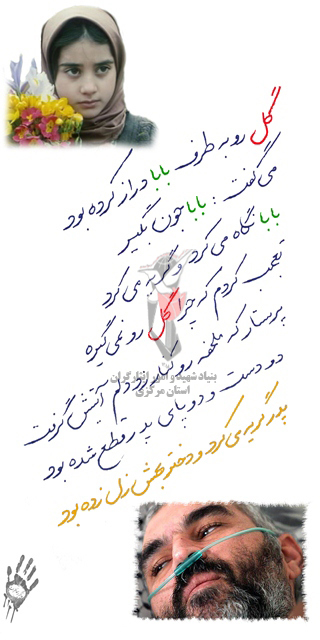 گل رو به طرف بابا دراز کرده بود
می گفت : بابا جون بگیر
بابا نگاه می کرد و گریه می کرد
تعجب کردم که چرا گل رو نمی گیره
پرستار که ملحفه رو کنار زد دلم آتیش گرفت
دو دست و دو پای پدر قطع شده بود
پدر گریه می کرد و دختر بهش زل زده بود
بنیاد شهید و امور ایثارگران
استان مرکزی